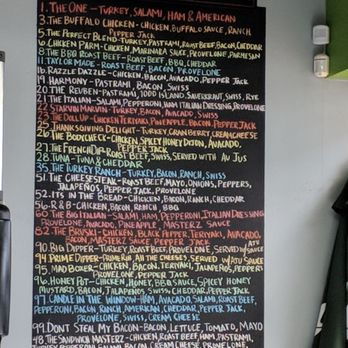 1. The One - Turkey, Salami, Ham & American
3. The Buffalo Chicken - Chicken, Buffalo Sauce, Ranch
Pepper Jack
5. The Perfect Blend - Turkey, Pastrami, Roast Beef, Bacon, Cheddar
6. Chicken Parm - Chicken, Marinara Sauce, Provolone, Parmesan
8. The BBQ Roast Beef - Roast Beef, BBQ, Cheddar
11. Taylor Made - Roast Beef, Bacon, Provolone
16. Razzle Dazzle - Chicken, Bacon, Avocado, Pepper Jack
19. Harmony - Pastrami, Bacon, Swiss
20. The Reuben - Pastrami, 1000 Island, Sauerkraut, Swiss, Rye
21. The Italian - Salami, Pepperoni, Ham, Italian Dressing, Provolone
22. Starvin Marvin - Turkey, Bacon, Avocado, Swiss
23. The Doll Up - Chicken Teriyaki, Pineapple, Bacon, Pepper Jack
25. Thanksgiving Delight - Turkey, Cranberry, Creamcheese
26. The Bodycheck - Chicken, Spicey Honey Dijon, Avocado,
Pepper Jack
27. The French Dip - Roast Beef, Swiss, Served with Au Jus
28. Tuna - Tuna & Cheddar
35. The Turkey Ranch - Turkey, Bacon, Ranch, Swiss
51. The Cheesesteak - Roast Beef, Mayo, Onions, Peppers,
Jalapeños, Pepper Jack, Provolone
52. It's in the Bread - Chicken, Bacon, Ranch, Cheddar
56. R&B - Chicken, Bacon, Ranch, BBQ
60. The Big Italian - Salami, Ham, Pepperoni, Italian Dressing
Provolone, Avocado, Pineapple, Masterz Sauce
82. The Bruski - Chicken, Black Pepper, Teriyaki, Avocado,
Bacon, Masterz Sauce, Pepper Jack
90. Big Dipper - Turkey, Roast Beef, Provolone, Served w/ Au Jus
94. Prime Dipper - Prime Rib, All the Cheeses, Served w/ Au Jus
95. Mad Boxer - Chicken, Bacon, Teriyaki, Jalapeños, Peppers
Provolone
96. Honey Pot - Chicken, Honey, BBQ Sauce, Spicey Honey
Mustard, Bacon, Jalapeños, Swiss, Cheddar, Pepper Jack
97. Candle in the Window - Ham, Avocado, Salami, Roast Beef,
Pepperoni, Bacon, Ranch, American, Cheddar, Pepper Jack,
Provolone, Swiss, Cream Cheese
99. Dont Steal My Bacon - Bacon, Lettuce, Tomato, Mayo
48. The Sandwich Master - Chicken, Roast Beef, Ham, Pastrami,
Turkey, Pepperoni, Salami, Bacon, Cream Cheese, Provolone,